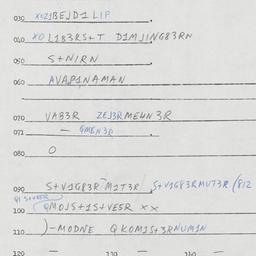 030 XO21BEJD1 LIP
040 XO L1B3RS+T D1MJING83RN
050 S+NIRN
060 AVAP1NAMAN
070 VAB3R ZEJ3RME4N3R
071 — QMEN3R
080 O
090 S+V1G83R M1T3R S+V1G83RMUT3R (812
91 S+VE5R
100 QMOJS+1S+VE5R XX
110 )-MODNE QKOM1S+3RNUM1N
120 130 140